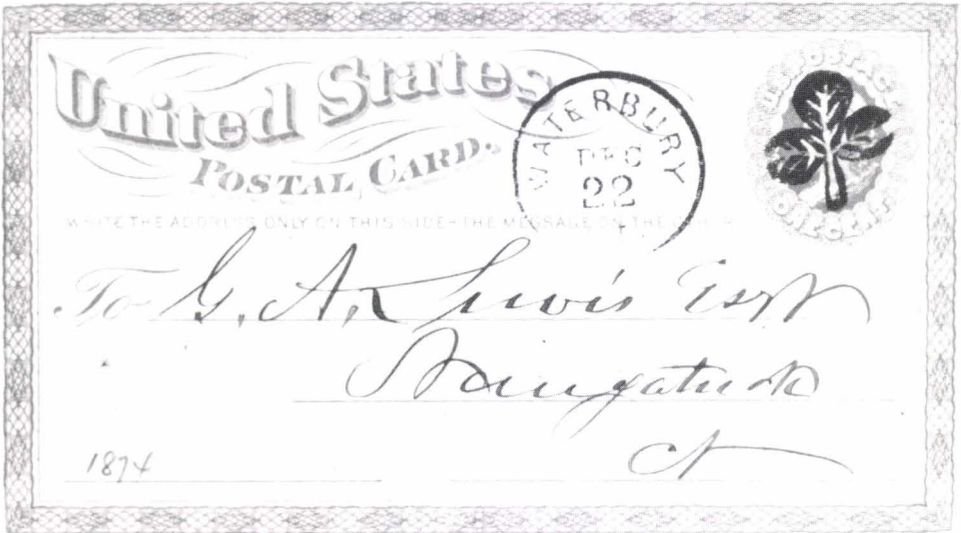 United States
POSTAL CARD.
WATERBURY
DEC
22
WRITE THE ADDRESS ONLY ON THIS SIDE-THE MESSAGE ON THE OTHER
To G. A. Lewis Esq
Naugatuck
Ct
1874